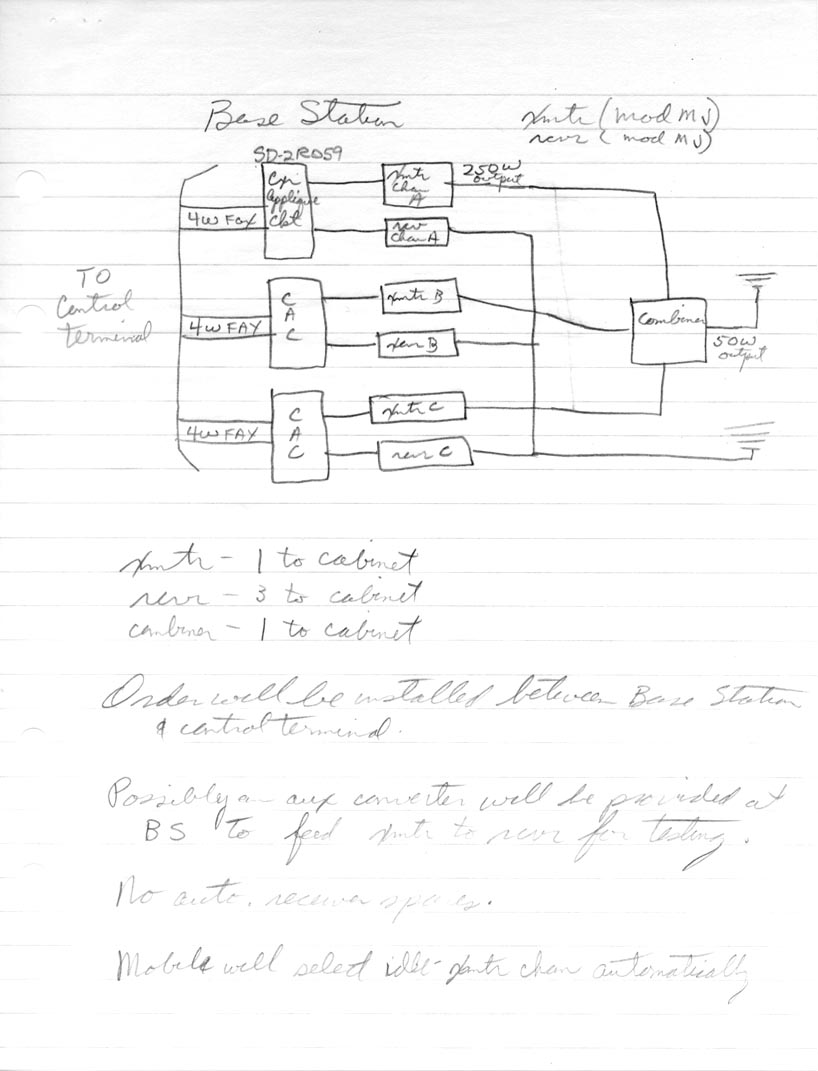 Base Station
xmtr (mod MJ)
revr (mod MJ)
SD-2R059
Cxr
applique
ckt
xmtr
chan
A
250W
output
4W FAX
revr
chan A
TO
Control
terminal
C
A
C
xmtr B
4W FAX
revr B
Combiner
50W
output
C
A
C
xmtr C
4W FAX
revr C
xmtr - 1 to cabinet
revr - 3 to cabinet
combiner - 1 to cabinet
Order will be installed between Base Station
& control terminal.
Possibly an aux converter will be provided at
BS to feed xmtr to revr for testing.
No auto. receiver spares.
Mobile will select idle xmtr chan automatically